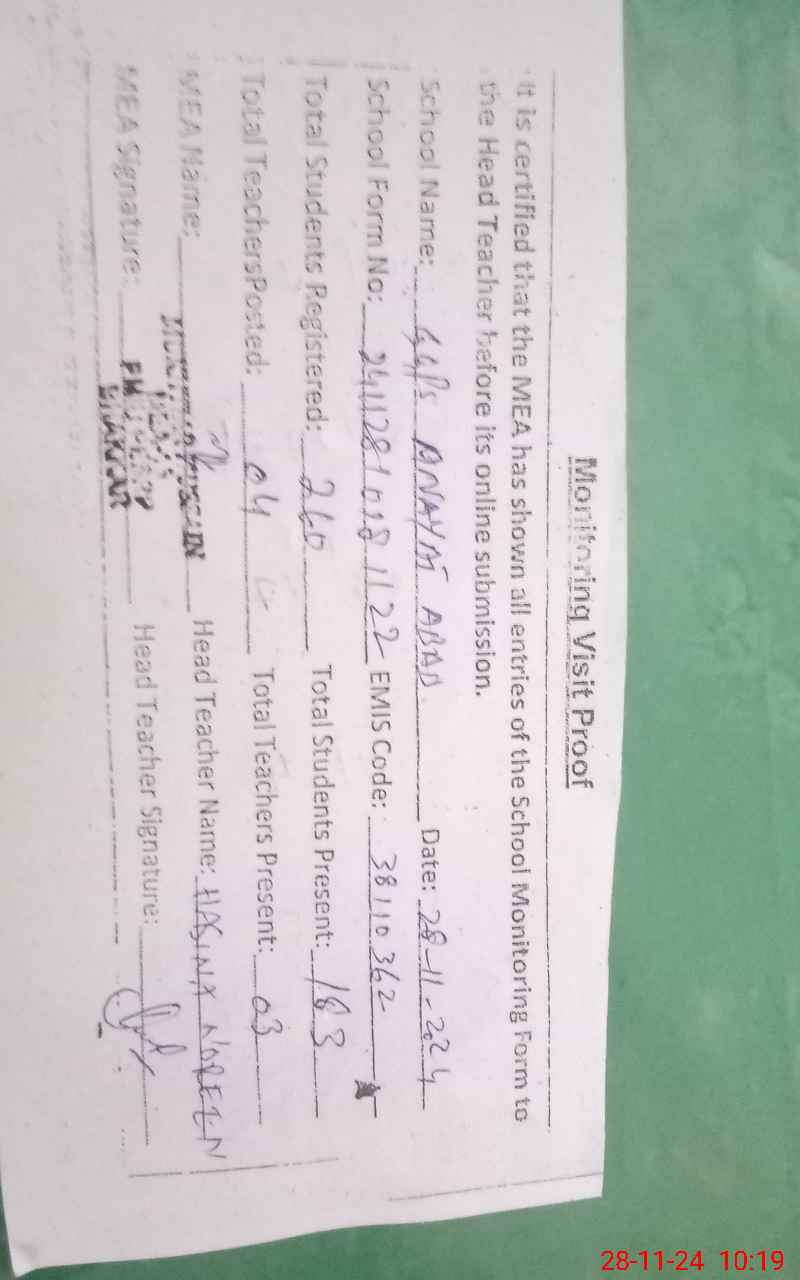 Monitoring Visit Proof
It is certified that the MEA has shown all entries of the School Monitoring Form to
the Head Teacher before its online submission.
School Name: GGPS ANAYAT ABAD Date: 28-11-2024
School Form No: EMIS Code: 38110362
Total Students Registered: 260 Total Students Present: 183
Total TeachersPosted: 04 Total Teachers Present: 03
MEA Name: Head Teacher Name: HASINA NOREEN
MEA Signature: Head Teacher Signature:
BHAKKAR
28-11-24 10:19